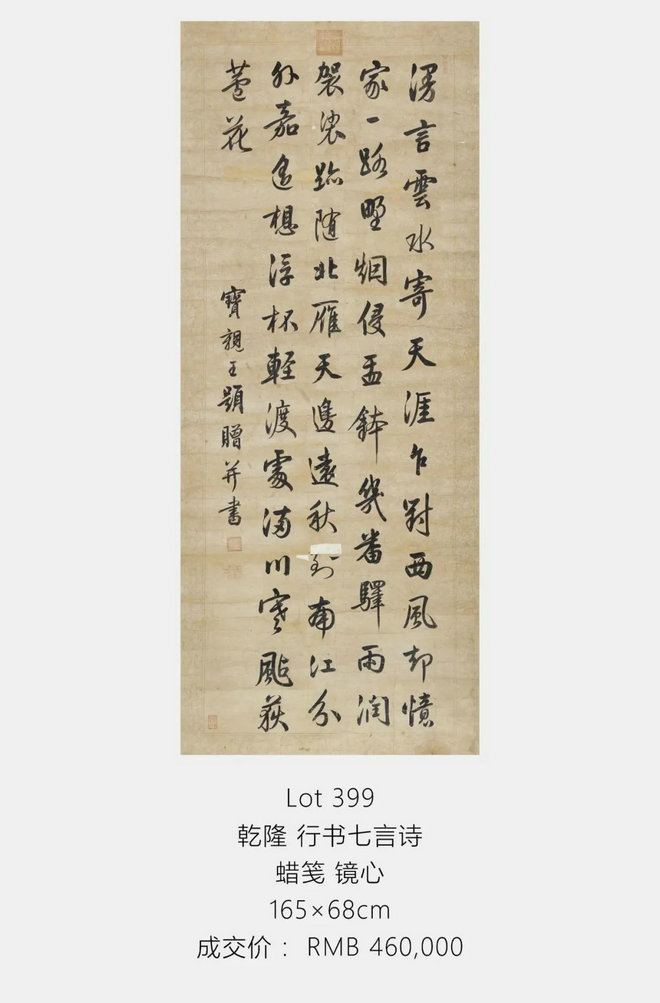 漫言雲水寄天涯乍對西風却憶
家一路野烟侵盂鉢幾番驛雨潤
袈裟跡随北雁天邊遠秋到南江分
外嘉遙想浮杯輕渡處滿川寒颭荻
蘆花
寶親王題贈并書
Lot 399
乾隆 行书七言诗
蜡笺 镜心
165×68cm
成交价： RMB 460,000